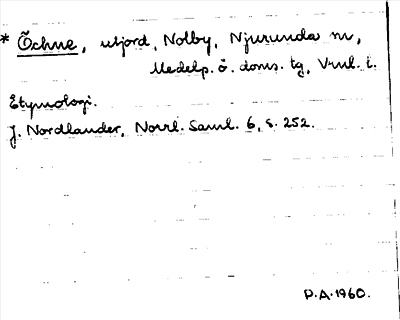 * Öchne, utjord, Nolby, Njurunda sn,
Medelp. ö. doms. tg, Vnl. l.
Etymologi.
J. Nordlander, Norrl. Saml. 6, s. 252.
P.A. 1960.